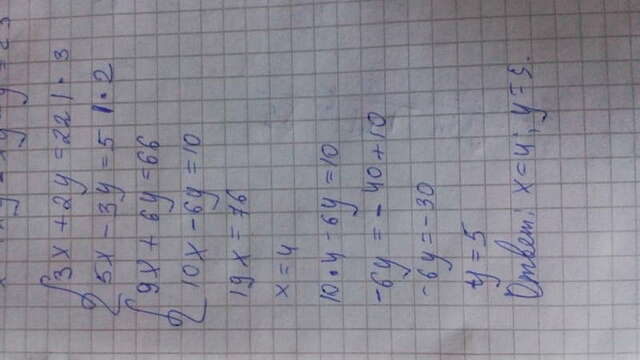 3x + 2y = 22 | · 3
5x - 3y = 5 | · 2
9x + 6y = 66
10x - 6y = 10
19x = 76
x = 4
10 · 4 - 6y = 10
-6y = -40 + 10
-6y = -30
y = 5
Ответ: x = 4; y = 5.